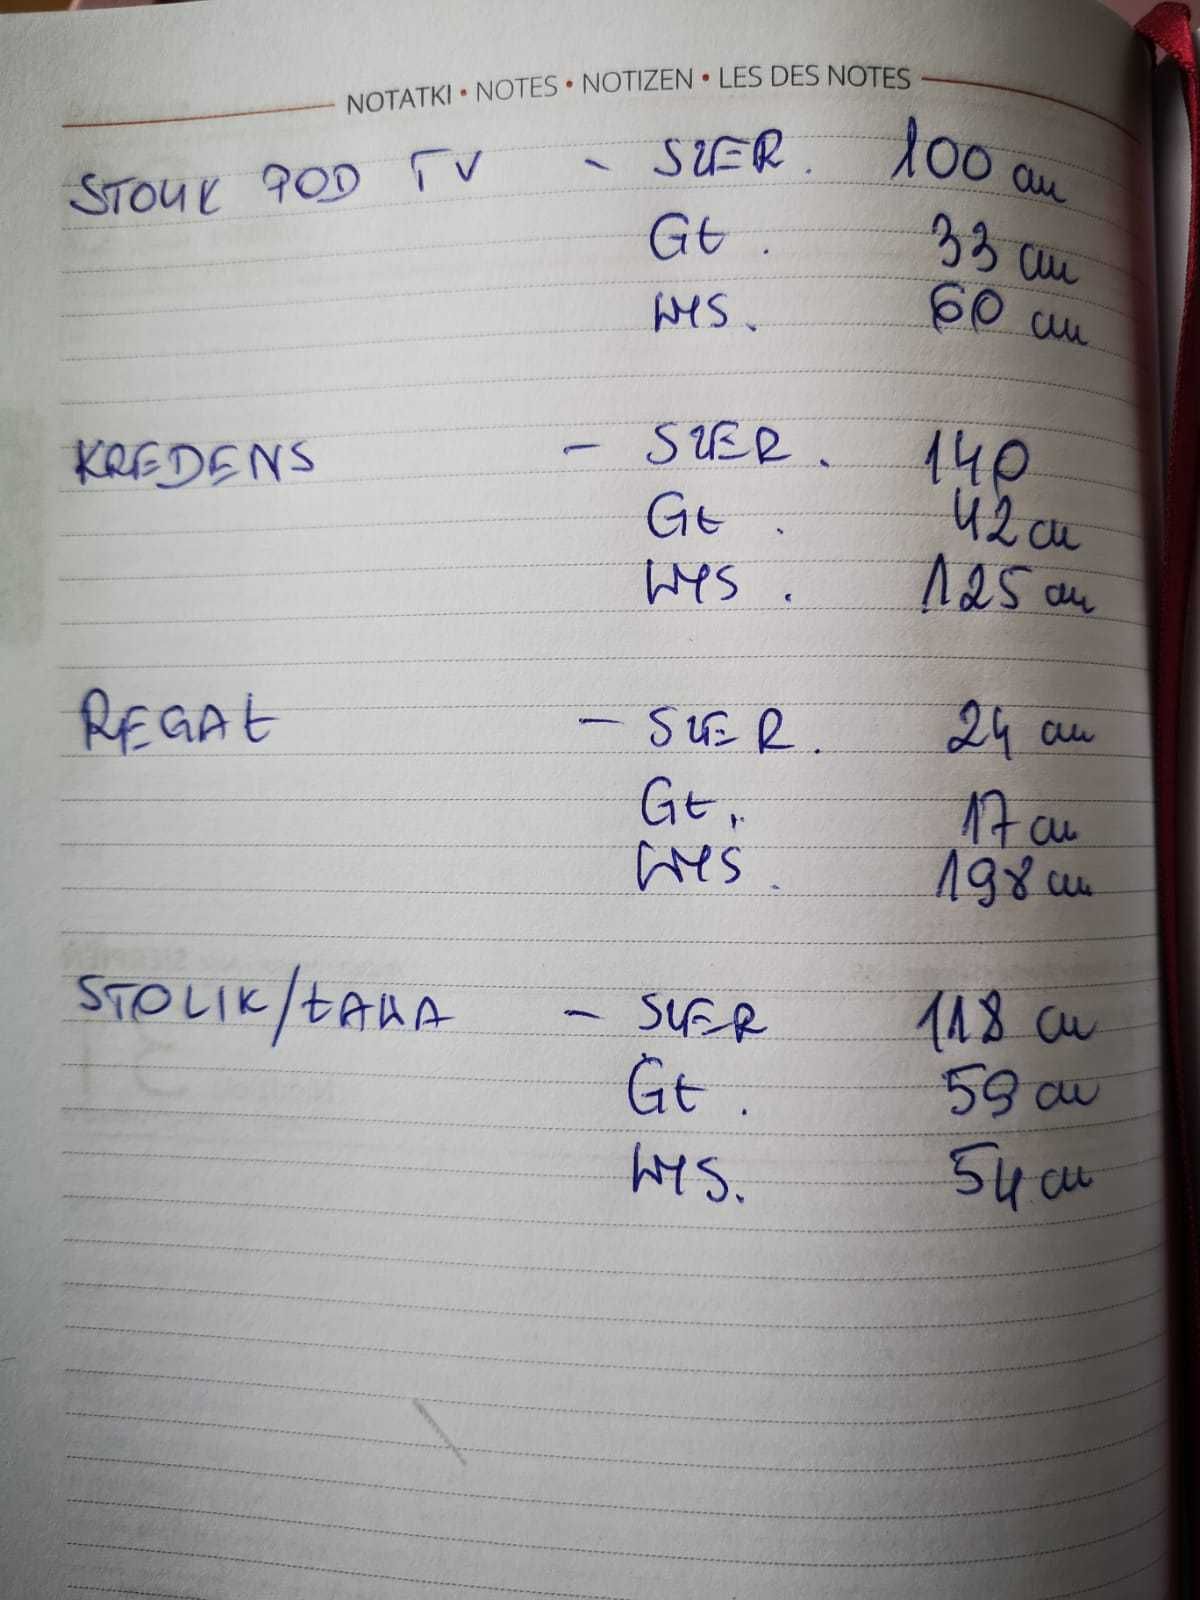 NOTATKI • NOTES • NOTIZEN • LES DES NOTES
STOLIK POD TV - SZER. 100 cm
GŁ. 33 cm
WYS. 60 cm
KREDENS - SZER. 140
GŁ. 42 cm
WYS. 125 cm
REGAŁ - SZER. 24 cm
GŁ. 17 cm
WYS. 198 cm
STOLIK/ŁAWA - SZER 118 cm
GŁ. 59 cm
WYS. 54 cm